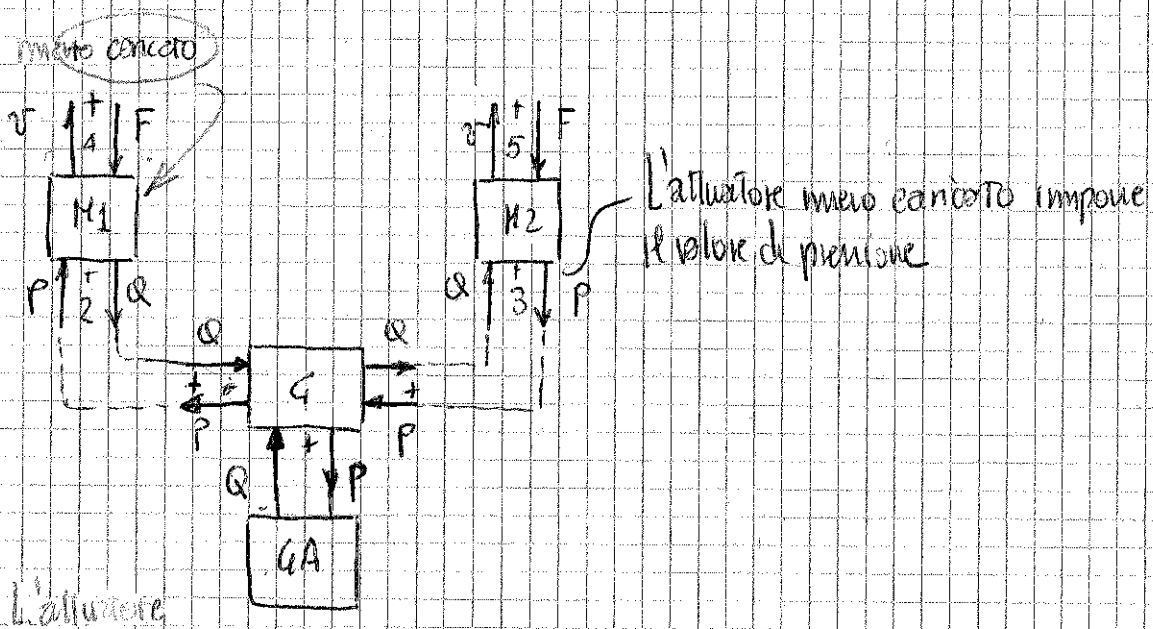 meno caricato
v + F
4
v + F
5
M1
M2
L'attuatore meno caricato impone
il valore di pressione
P + Q
2
Q + P
3
Q
Q
+
G
+
P
P
Q
+
P
GA
L'attuatore